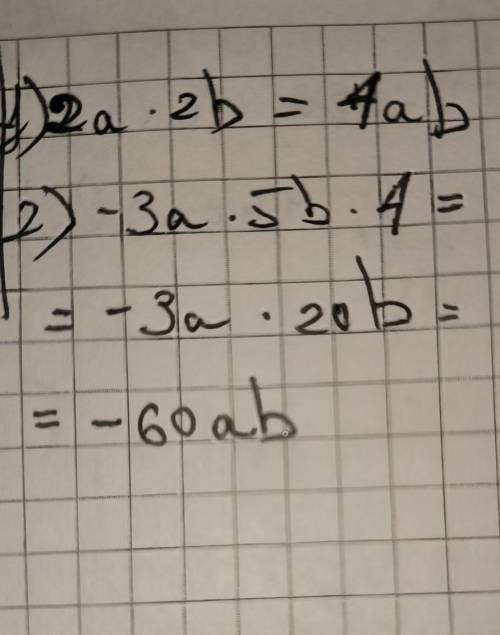 1) 2a · 2b = 4ab
2) -3a · 5b · 4 =
= -3a · 20b =
= -60ab